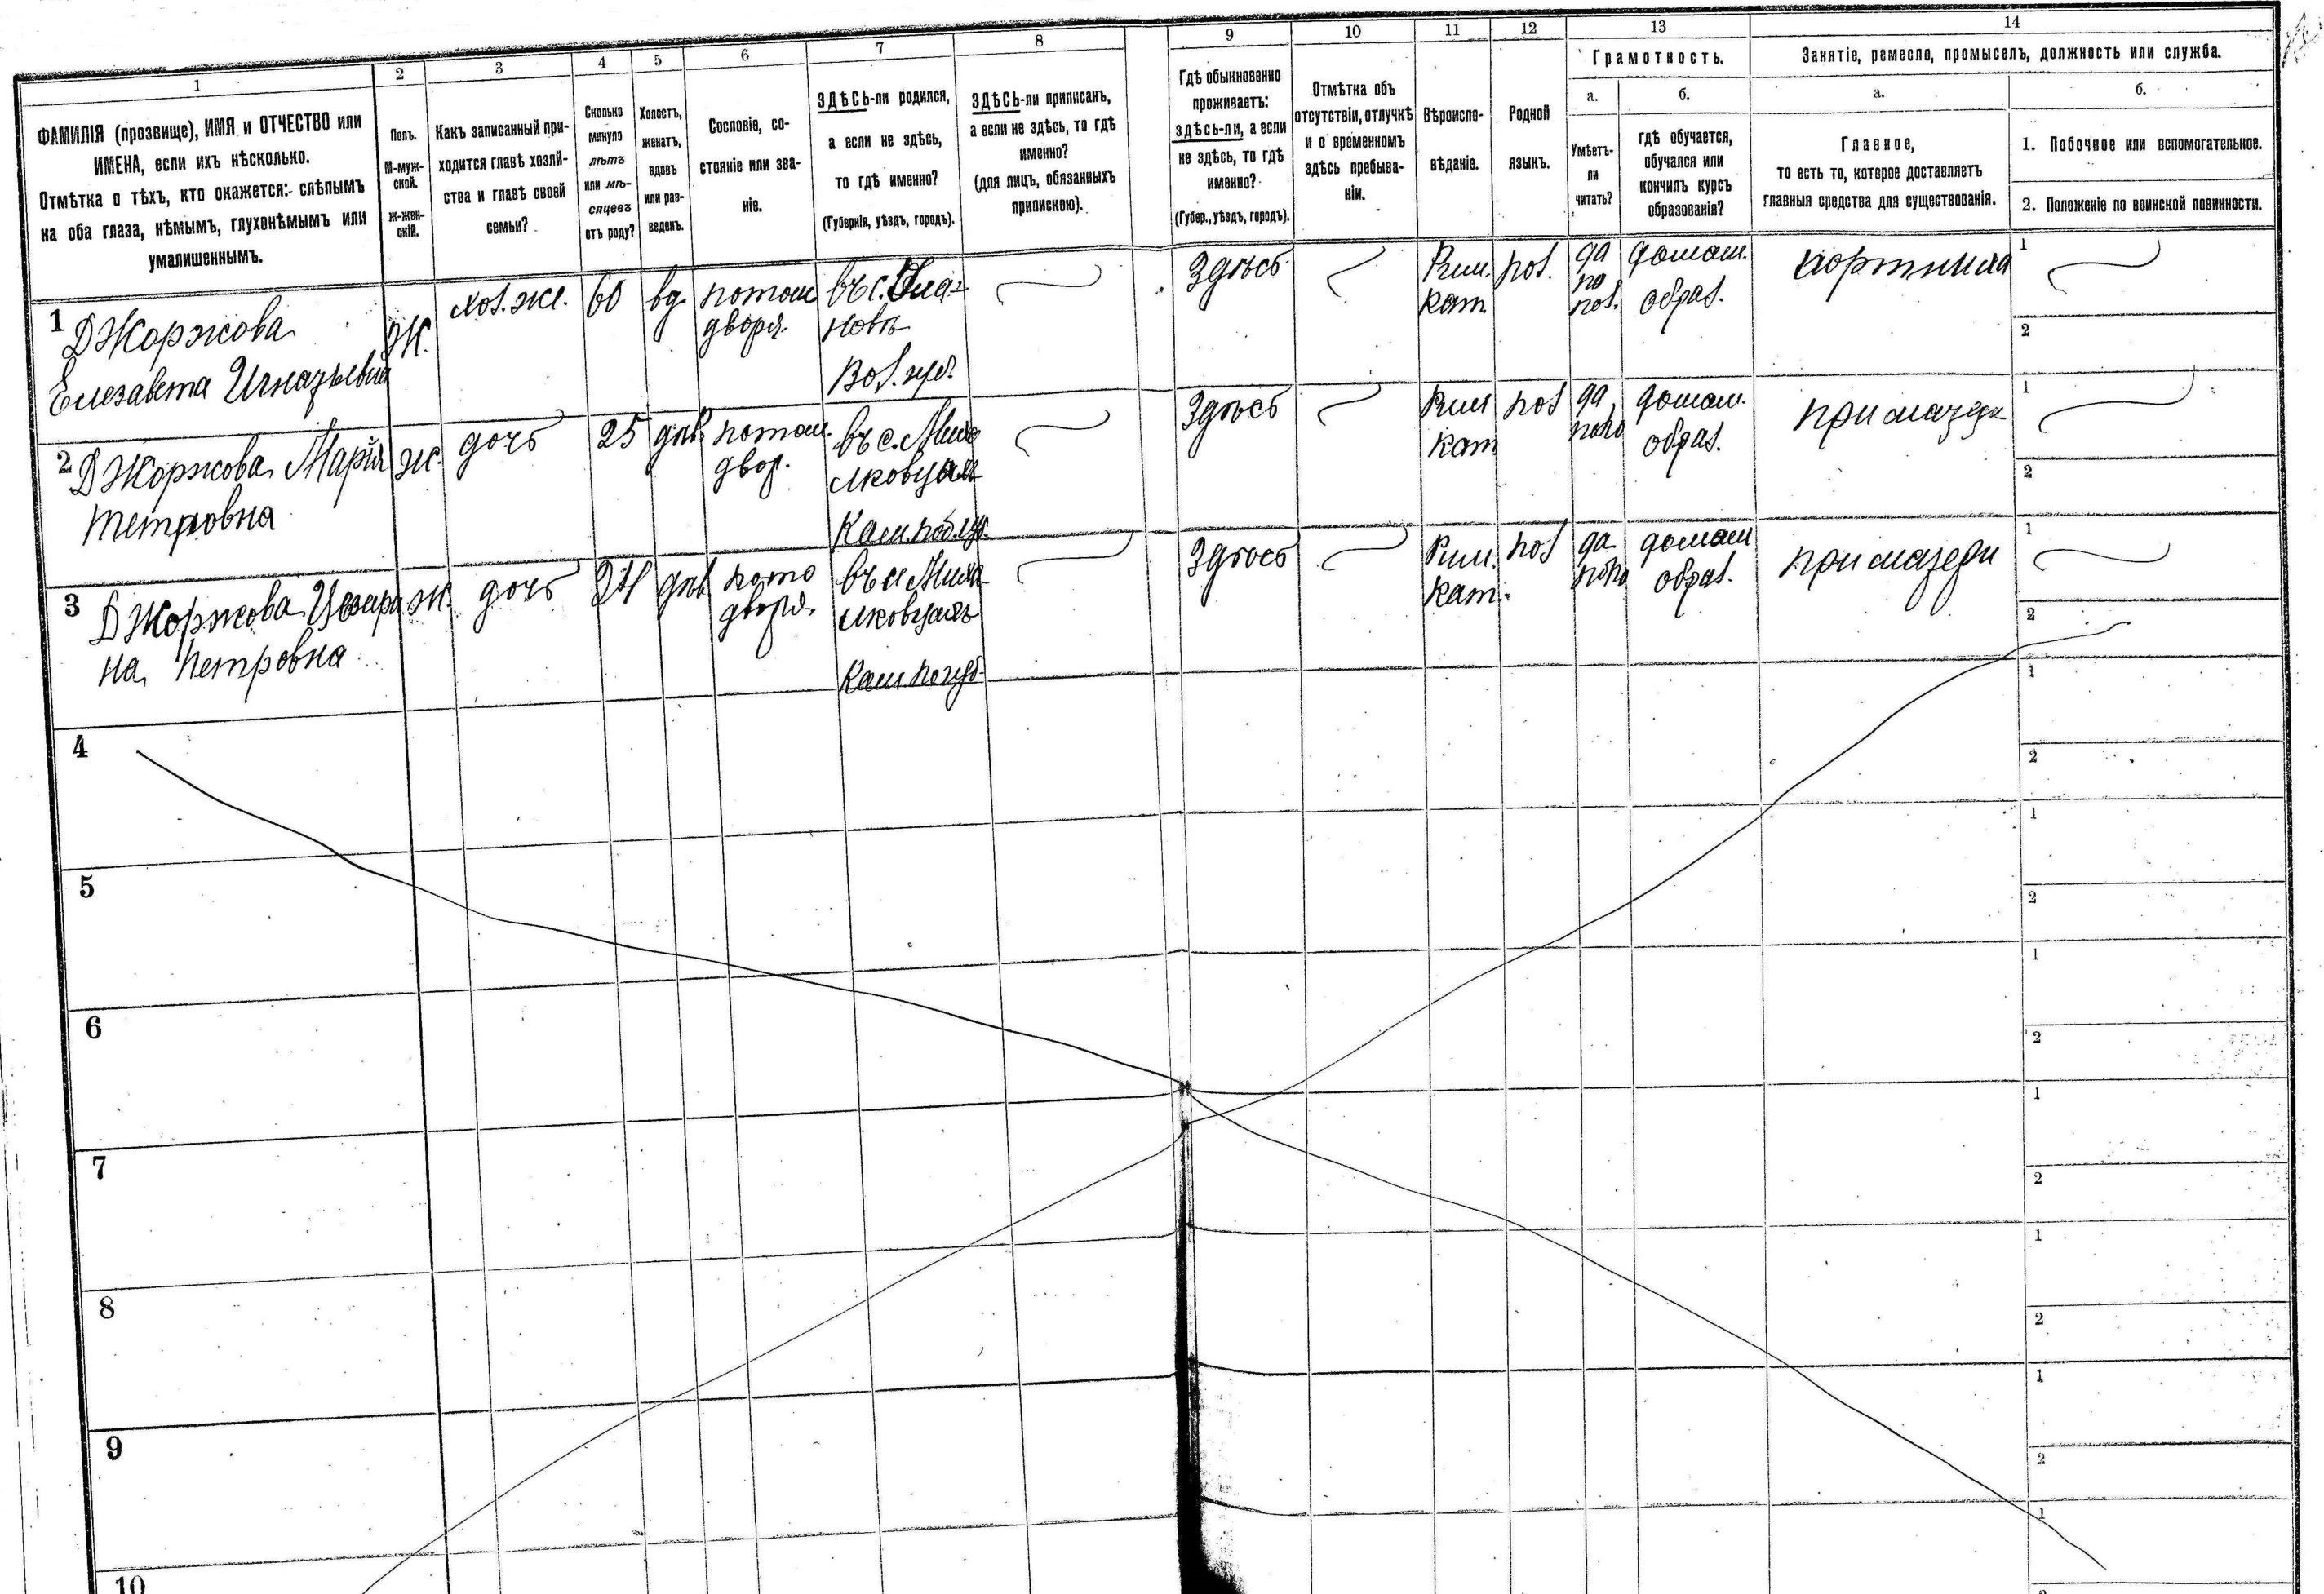 1
2
3
4
5
6
7
8
9
10
11
12
13
14
ФАМИЛІЯ (прозвище), ИМЯ и ОТЧЕСТВО или
ИМЕНА, если ихъ нѣсколько.
Отмѣтка о тѣхъ, кто окажется: слѣпымъ
на оба глаза, нѣмымъ, глухонѣмымъ или
умалишеннымъ.
Полъ.
М-муж-
ской.
Ж-жен-
скій.
Какъ записанный при-
ходится главѣ хозяй-
ства и главѣ своей
семьи?
Сколько
минуло
лѣтъ
или мѣ-
сяцевъ
отъ роду?
Холостъ,
женатъ,
вдовъ
или раз-
веденъ.
Сословіе, со-
стояніе или зва-
ніе.
ЗДѢСЬ-ли родился,
а если не здѣсь,
то гдѣ именно?
(Губернія, уѣздъ, городъ).
ЗДѢСЬ-ли приписанъ,
а если не здѣсь, то гдѣ
именно?
(для лицъ, обязанныхъ
припискою).
Гдѣ обыкновенно
проживаетъ:
здѣсь-ли, а если
не здѣсь, то гдѣ
именно?
(Губер., уѣздъ, городъ).
Отмѣтка объ
отсутствіи, отлучкѣ
и о временномъ
здѣсь пребыва-
ніи.
Вѣроиспо-
вѣданіе.
Родной
языкъ.
Грамотность.
а.
Умѣетъ-
ли
читать?
б.
гдѣ обучается,
обучался или
кончилъ курсъ
образованія?
Занятіе, ремесло, промыселъ, должность или служба.
а.
Главное,
то есть то, которое доставляетъ
главныя средства для существованія.
б.
1. Побочное или вспомогательное.
2. Положеніе по воинской повинности.
1 Джоржова
Елезавета
Ж.
хоз. же.
60
вд.
потом
дворя.
въ с.
Здѣсь
Рим.
кат.
пол.
да
по
пол.
домаш.
образ.
1
2
2 Джоржова Марія
Петровна
Ж.
дочь
25
дѣв.
потом.
двор.
въ с.
Здѣсь
Рим
кат
пол
да
домаш.
образ.
при матери
1
2
3 Джоржова
на Петровна
Ж.
дочь
24
дѣв.
пото
дворя.
Здѣсь
Рим.
кат.
пол
да
домаш
образ.
при матери
1
2
4
1
2
5
1
2
6
1
2
7
1
2
8
1
2
9
1
2
10
1